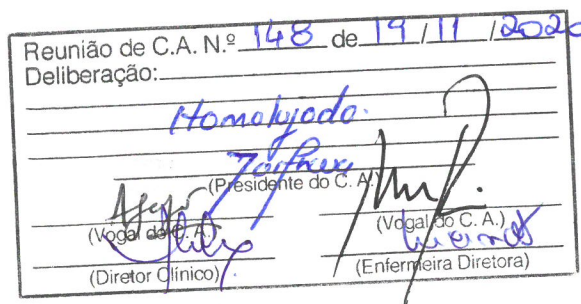 Reunião de C.A. N.º 148 de 19 / 11 / 2020
Deliberação:
Homologado.
(Presidente do C. A.)
(Vogal do C. A.) (Vogal do C. A.)
(Diretor Clínico) (Enfermeira Diretora)